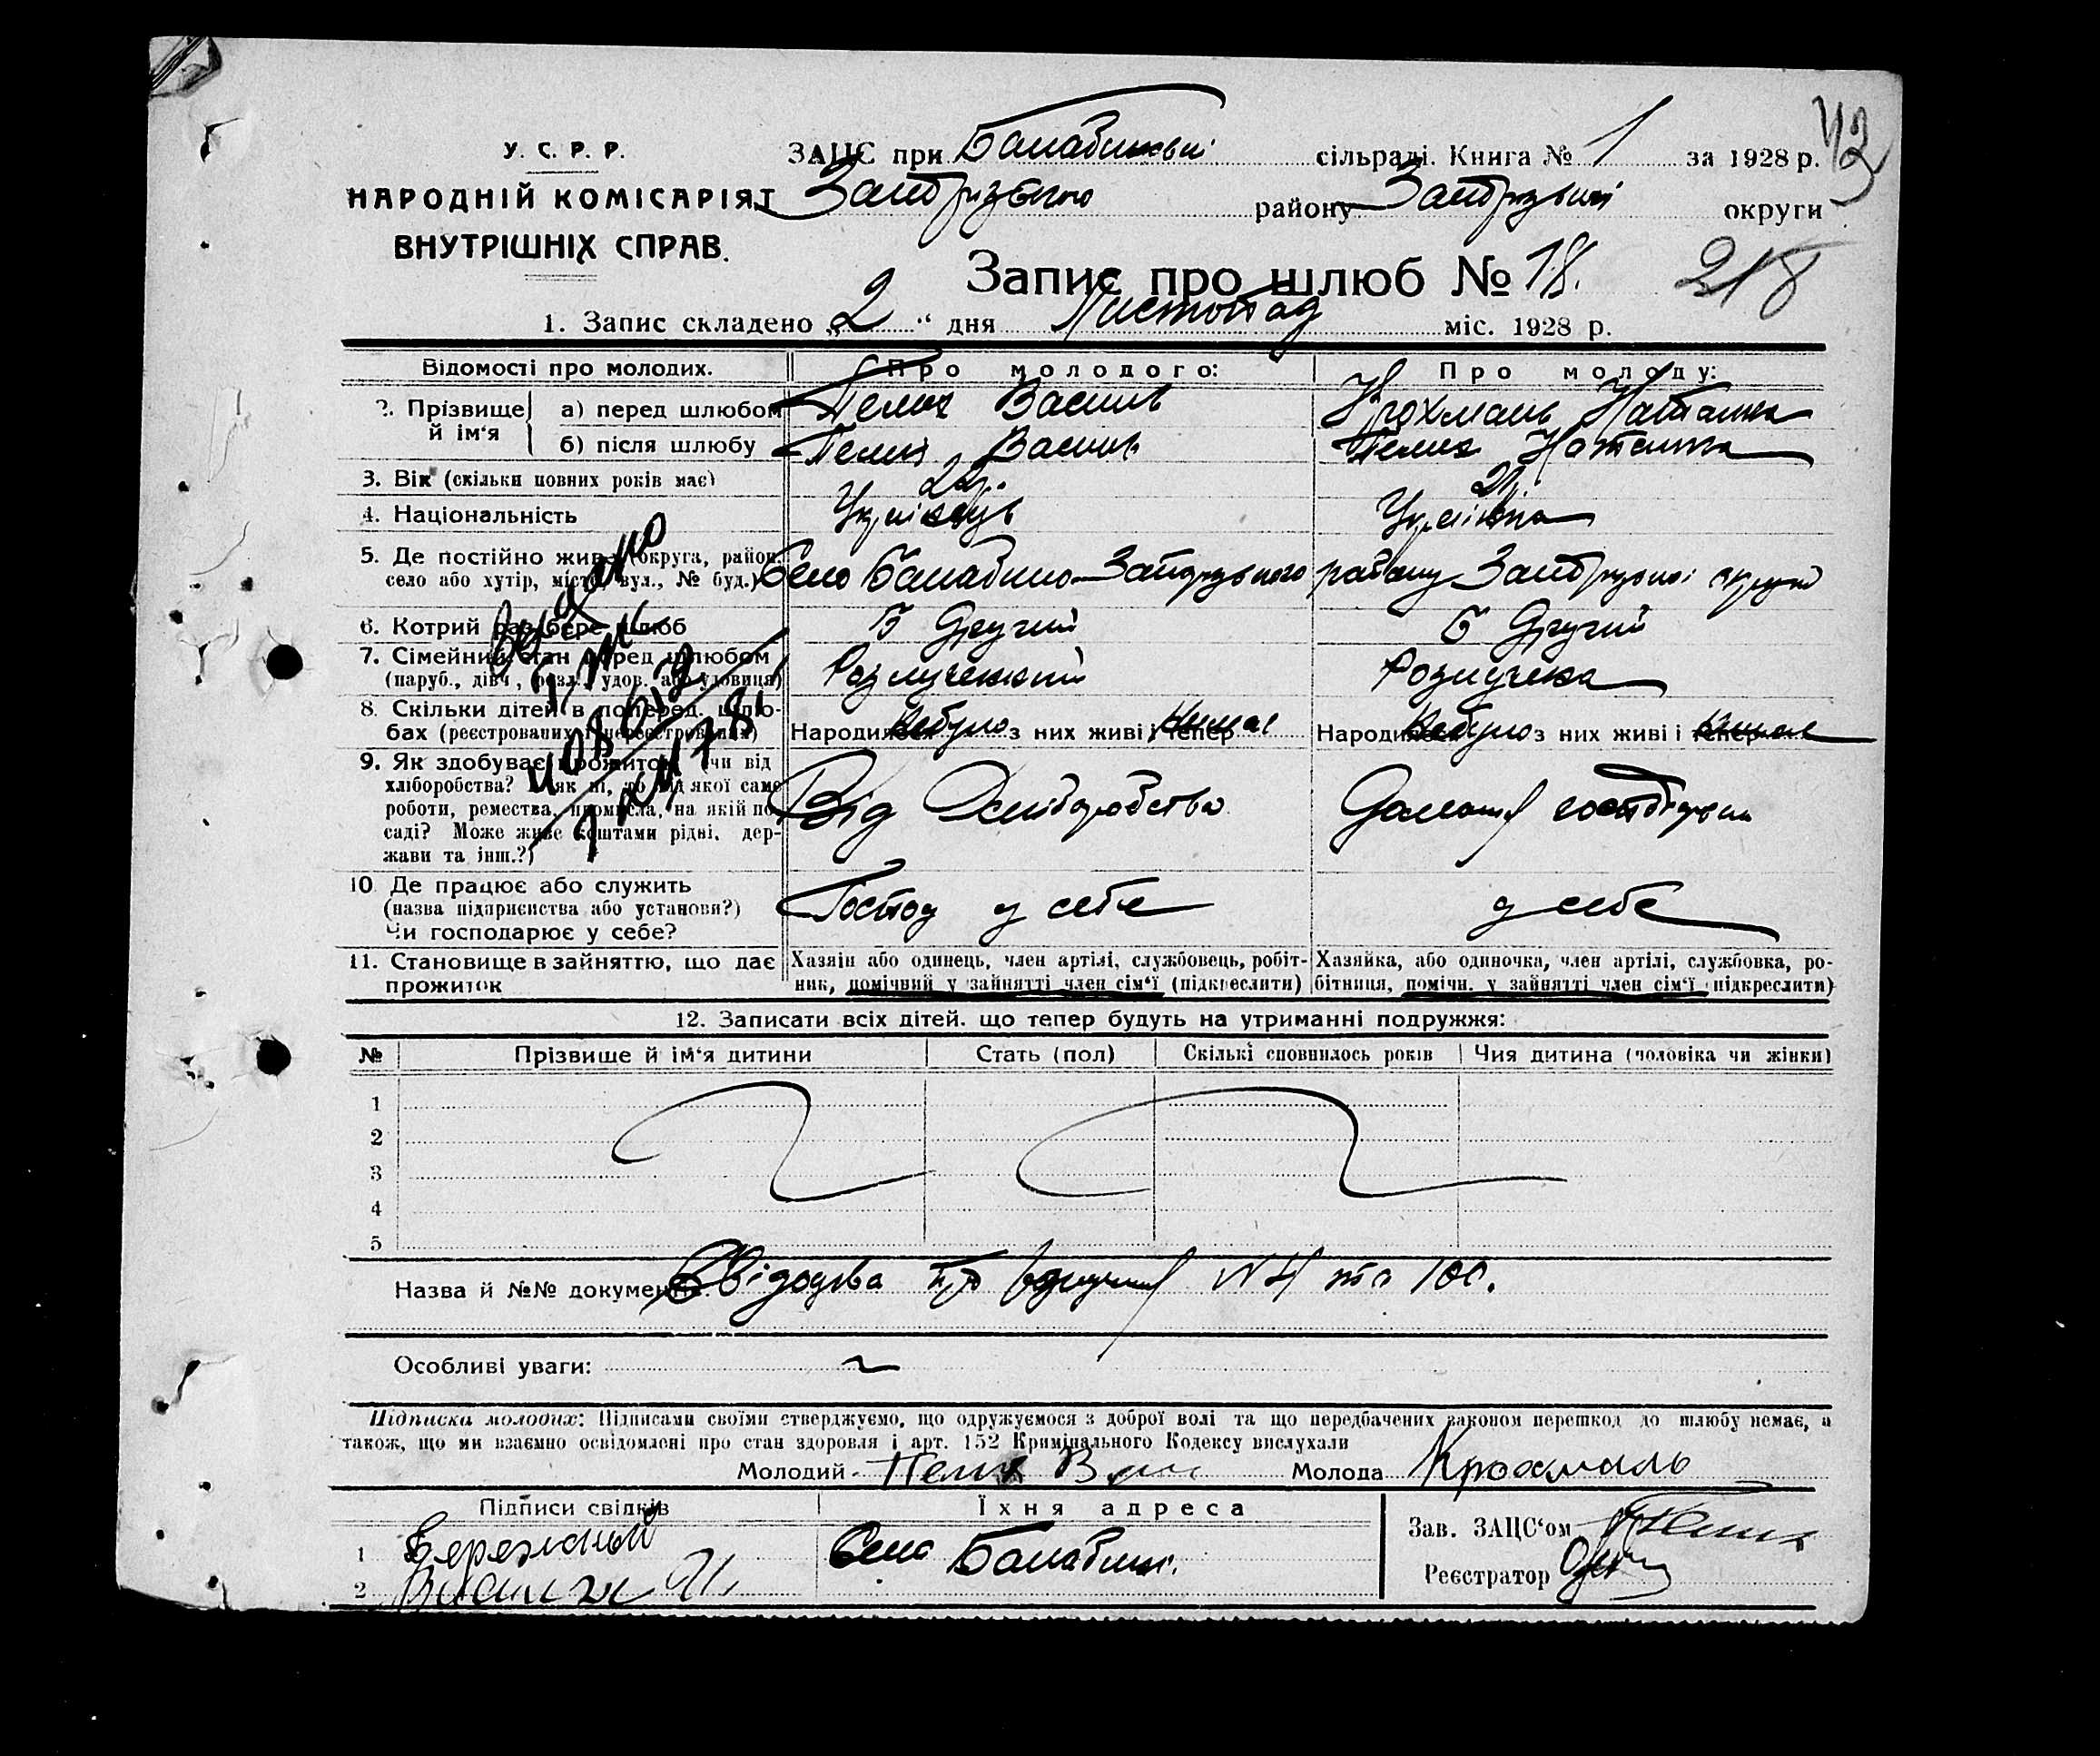 У. С. Р. Р.
НАРОДНІЙ КОМІСАРІЯТ
ВНУТРІШНІХ СПРАВ.
ЗАЦС при Балабинській сільраді. Книга № 1 за 1928 р.
43
району округи
Запис про шлюб № 18.
218
1. Запис складено „2“ дня Листопад міс. 1928 р.
Відомості про молодих. Про молодого: Про молоду:
2. Прізвище й ім‘я
а) перед шлюбом Пелих Василь Крохмаль Наталка
б) після шлюбу Пелих Василь Пелих Наталка
3. Вік (скільки повних років має)
4. Національність Українець Українка
5. Де постійно живе (округа, район,
село або хутір, місто, вул., № буд.) Село Балабино Запорізького району Запорізької округи
6. Котрий раз бере шлюб Другий Другий
7. Сімейний стан перед шлюбом
(паруб., дівч., розл., удов. або удовиця) Розлучений Розлучена
8. Скільки дітей в поперед. шлюбах (реєстрованих і нереєстрованих)
Народилося Небуло з них живі і тепер Немає
Народилося Небуло з них живі і тепер Немає
9. Як здобуває прожиток (чи від
хліборобства? Як ні, то від якої саме
роботи, ремества, промисла, на якій по-
саді? Може живе коштами рідні, дер-
жави та інш.?)
Від Хліборобства
10. Де працює або служить
(назва підприємства або установи?)
Чи господарює у себе?
Господ у себе
у себе
11. Становище в зайняттю, що дає
прожиток
Хазяін або одинець, член артілі, службовець, робіт-
ник, помічний у зайнятті член сім‘ї (підкреслити)
Хазяйка, або одиночка, член артілі, службовка, ро-
бітниця, помічн. у зайнятті член сім‘ї (підкреслити)
12. Записати всіх дітей, що тепер будуть на утриманні подружжя:
№ Прізвище й ім‘я дитини Стать (пол) Скількі сповнилось років Чия дитина (чоловіка чи жінки)
1
2
3
4
5
Назва й №№ документів.
Особливі уваги:
Підписка молодих: Підписами своїми стверджуємо, що одружуємося з доброї волі та що передбачених законом перешкод до шлюбу немає, а
також, що ми взаємно освідомлені про стан здоровля і арт. 152 Кримінального Кодексу вислухали
Молодий Пелих Молода Крохмаль
Підписи свідків Їхня адреса
1 Бережный Село Балабино.
2
Зав. ЗАЦС‘ом
Реєстратор